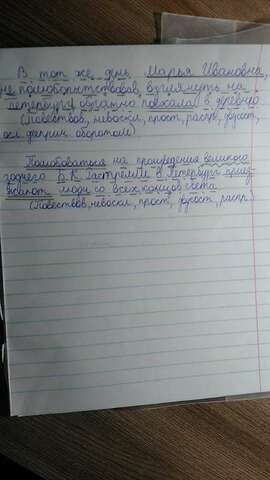 В тот же день Марья Ивановна,
не полюбопытствовав взглянуть на
Петербург, обратно поехала в деревню.
(Повествов, невоскл, прост, распр, двусост,
осл. дееприч. оборотом)
Полюбоваться на произведения великого
зодчего Б.К. Растрелли в Петербург приез-
жают люди со всех концов света.
(Повествов, невоскл, прост, двусост, распр.)